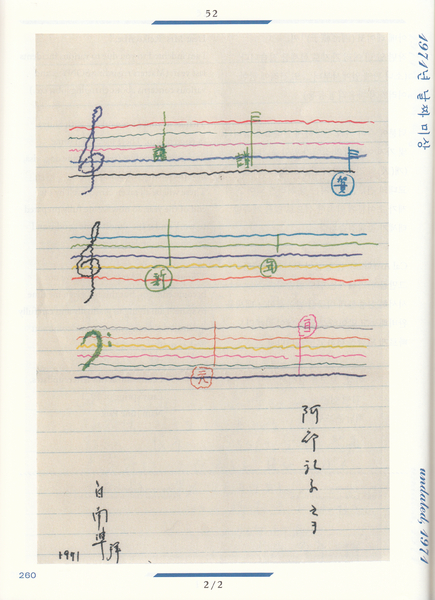 52
1971년 날짜 미상
賀
新
年
元
旦
阿
白南準 拝
1971
undated, 1971
260
2/2